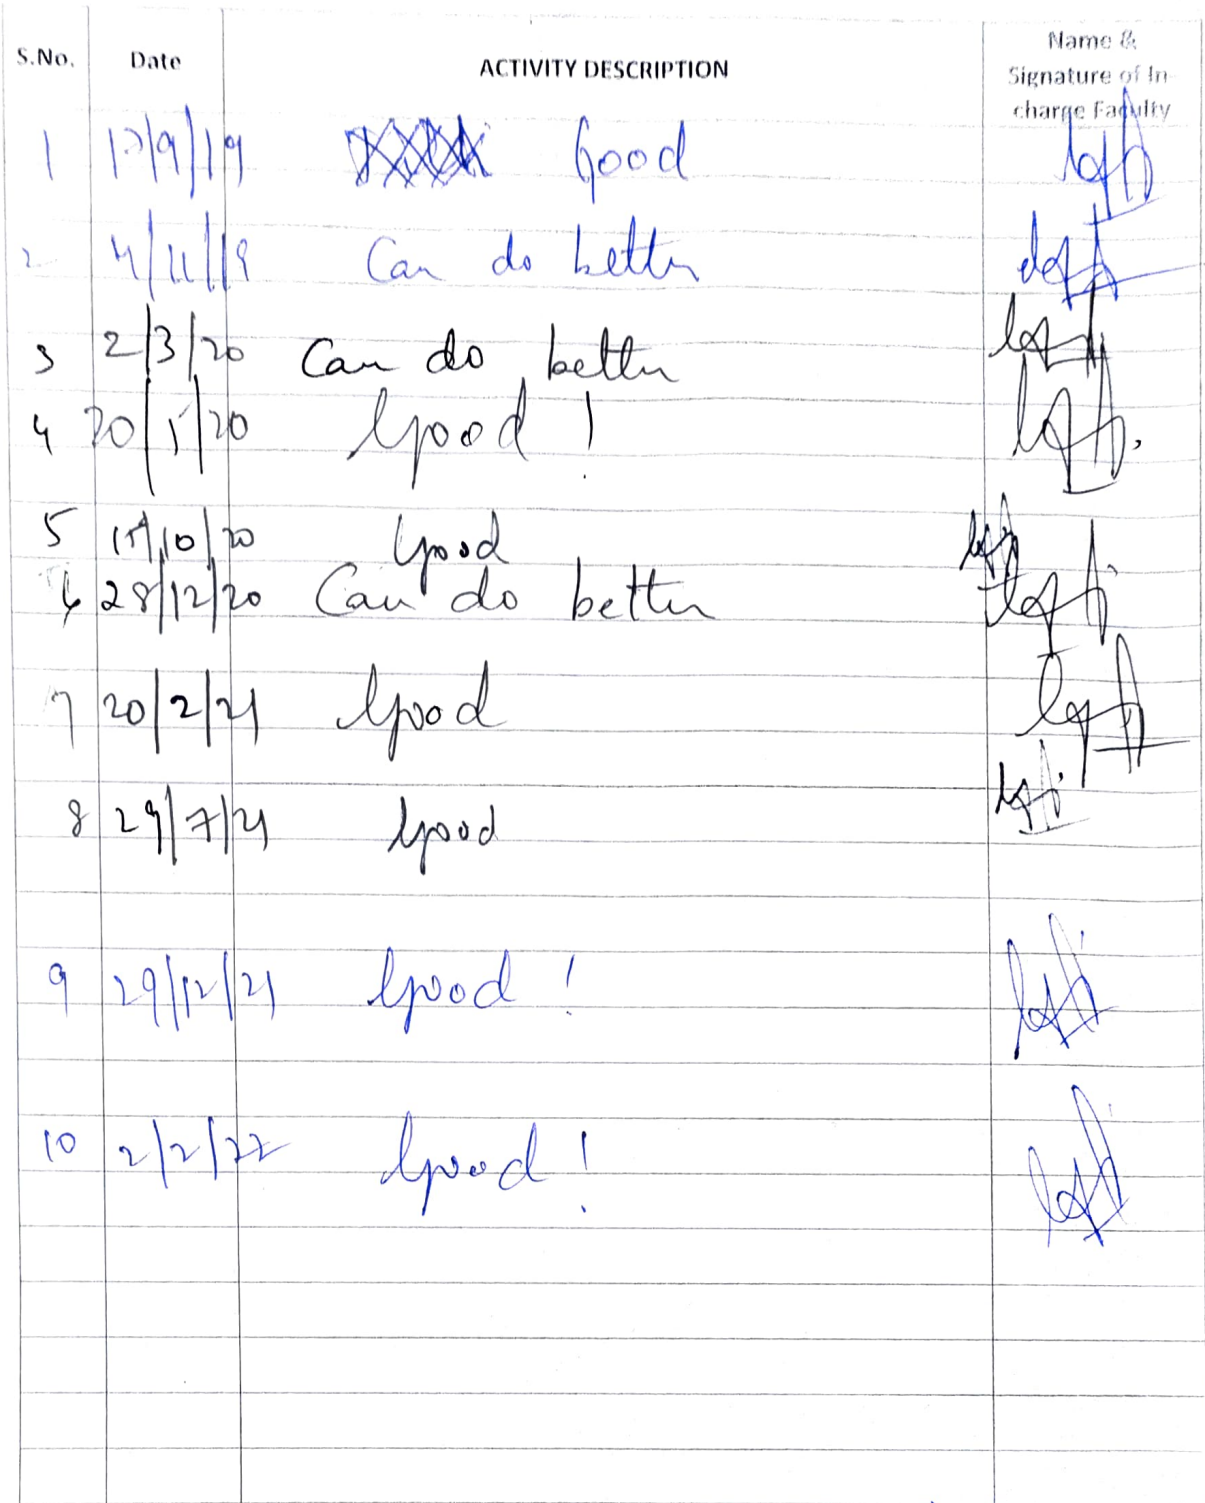 S.No. Date ACTIVITY DESCRIPTION Name & Signature of In-charge Faculty
1 17/9/19 Good
2 4/11/19 Can do better
3 2/3/20 Can do better
4 20/5/20 Good !
5 15/10/20 Good
6 28/12/20 Can do better
7 20/2/21 Good
8 29/7/21 Good
9 29/12/21 Good !
10 2/2/22 Good !